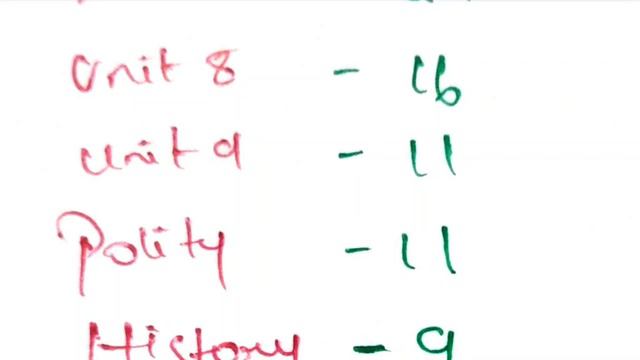 Unit 8 - 16
Unit 9 - 11
Polity - 11
History - 9